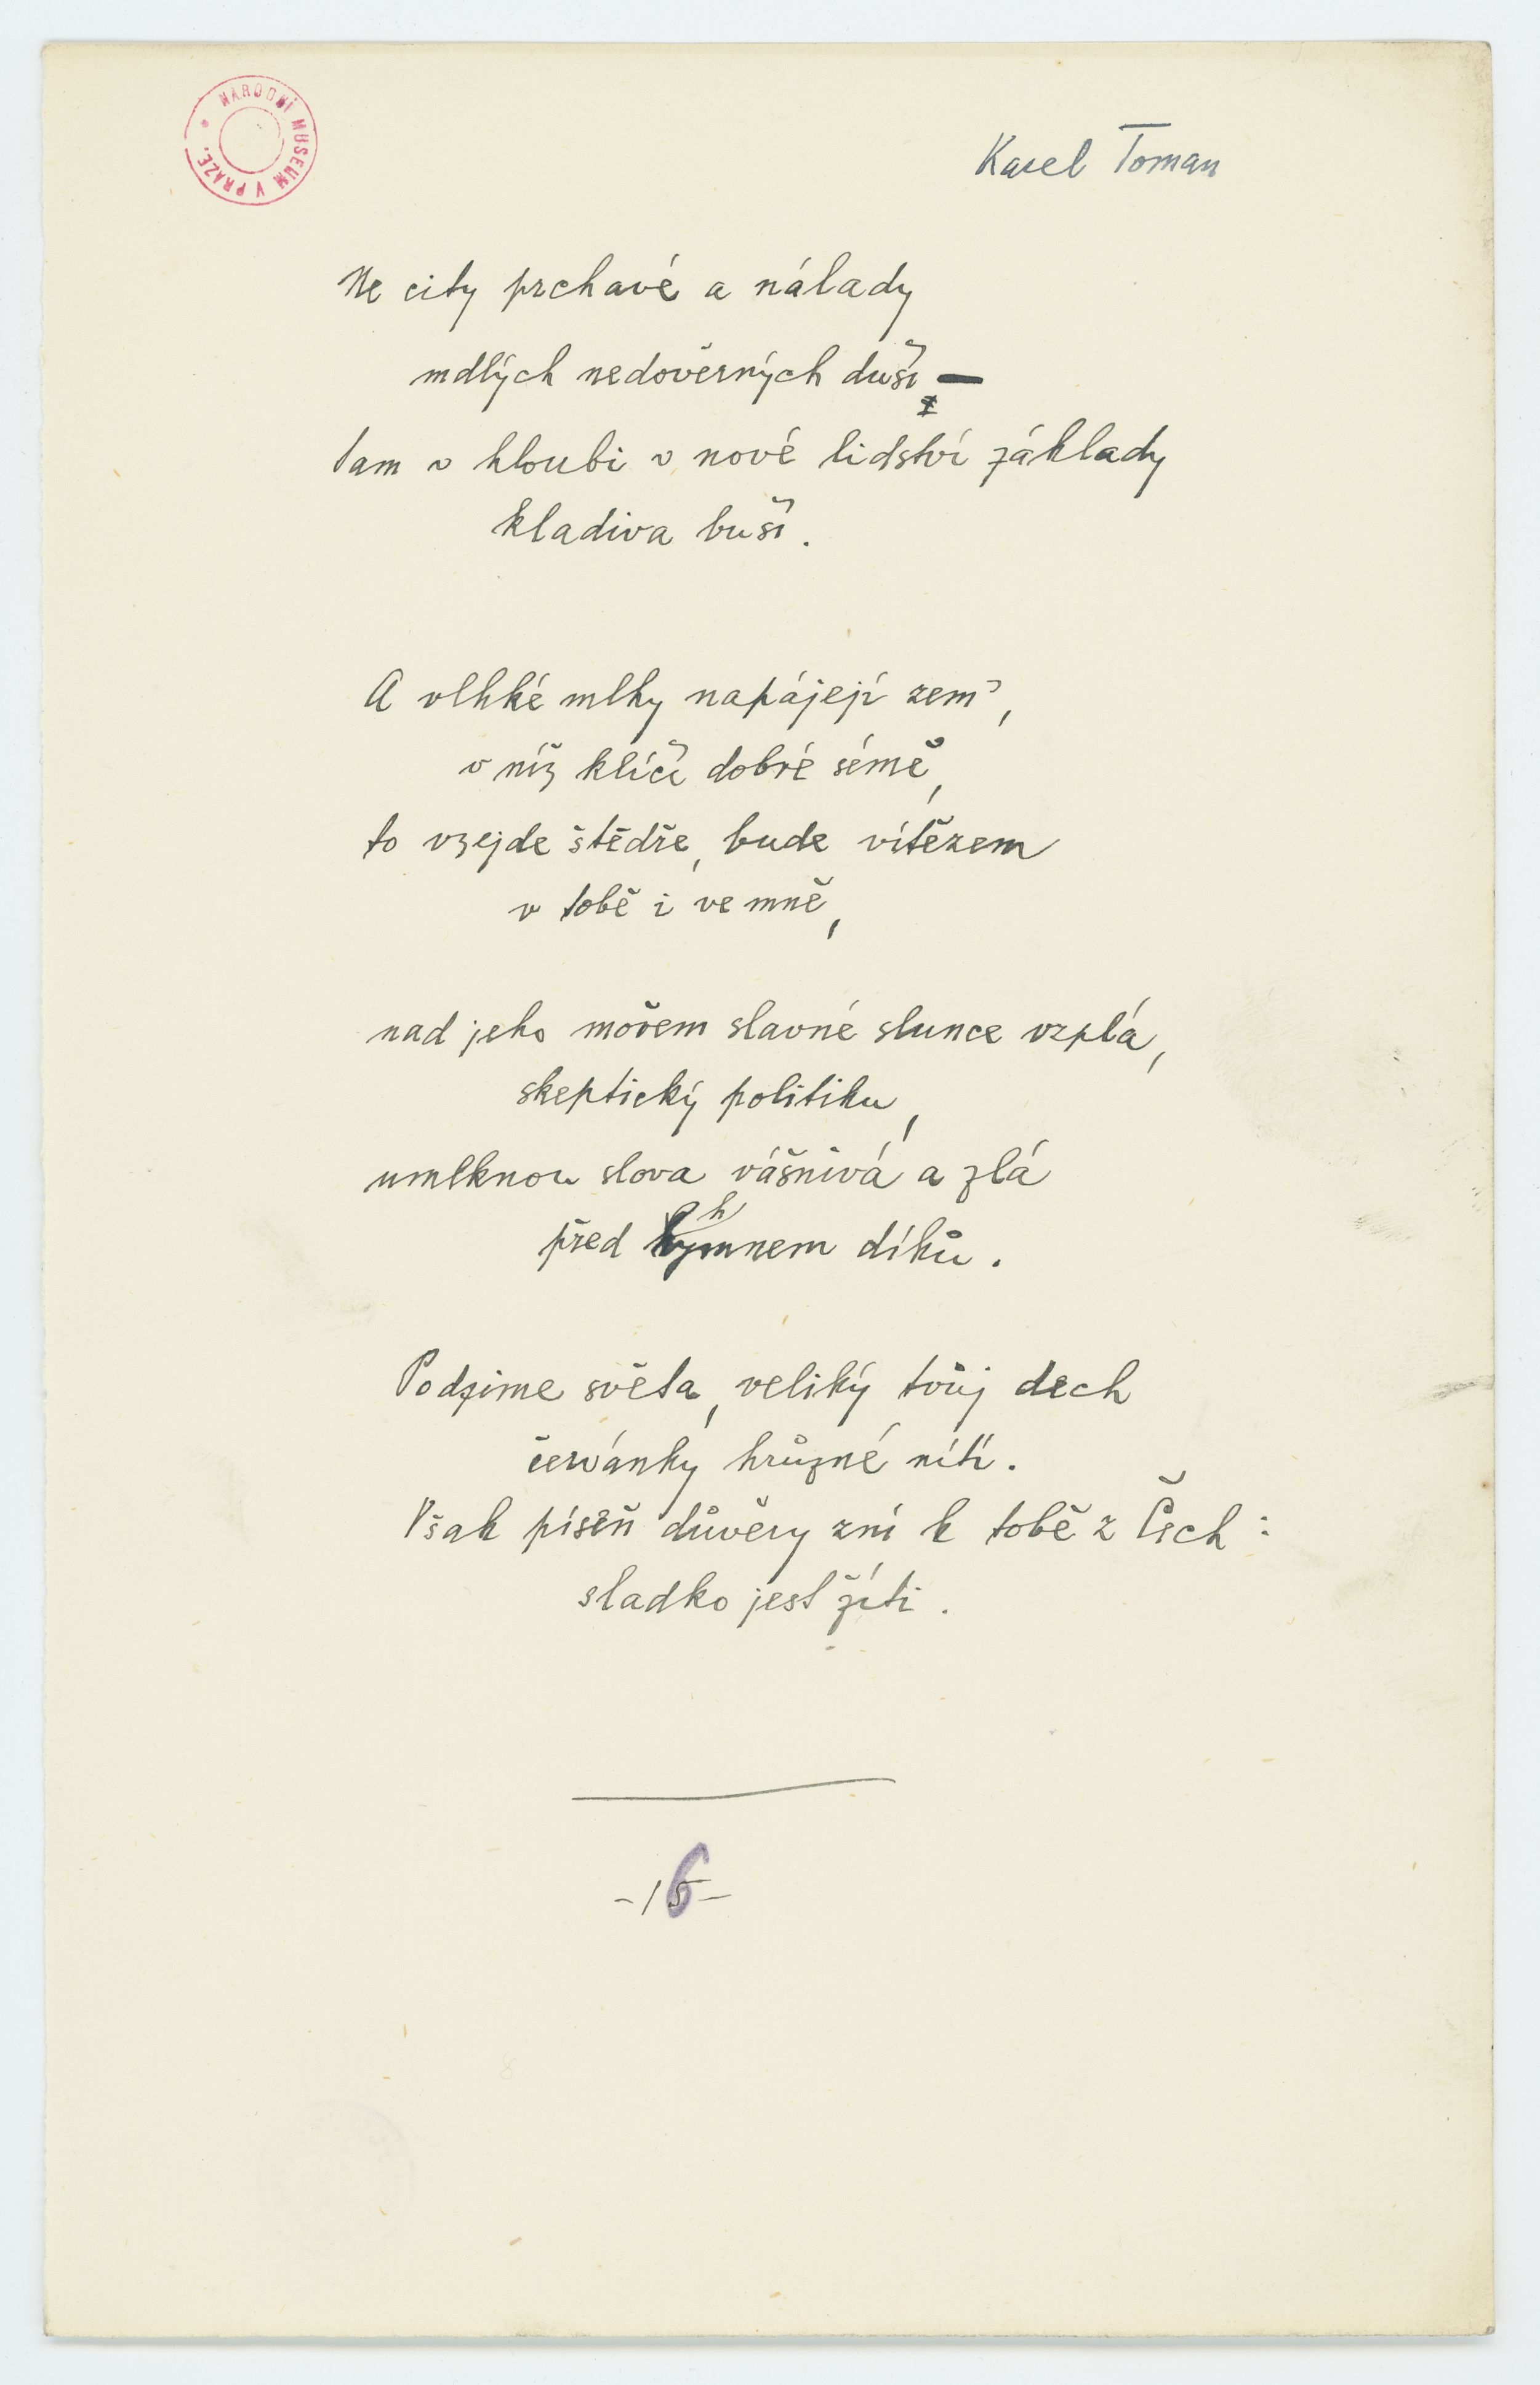 NÁRODNÍ MUSEUM V PRAZE.
Karel Toman
Ne city prchavé a nálady
mdlých nedověrných duší –
Tam v hloubi v nové lidství základy
kladiva buší.
A vlhké mlhy napájejí zem',
v níž klíčí dobré símě,
to vzejde štědře, bude vítězem
v tobě i ve mně,
nad jeho mořem slavné slunce vzplá,
skeptický politiku,
umlknou slova vášnivá a zlá
před hymnem díků.
Podzime světa, veliký tvůj dech
červánky hrůzné nítí.
Však píseň důvěry zní k tobě z Čech:
sladko jest žíti.
-16-